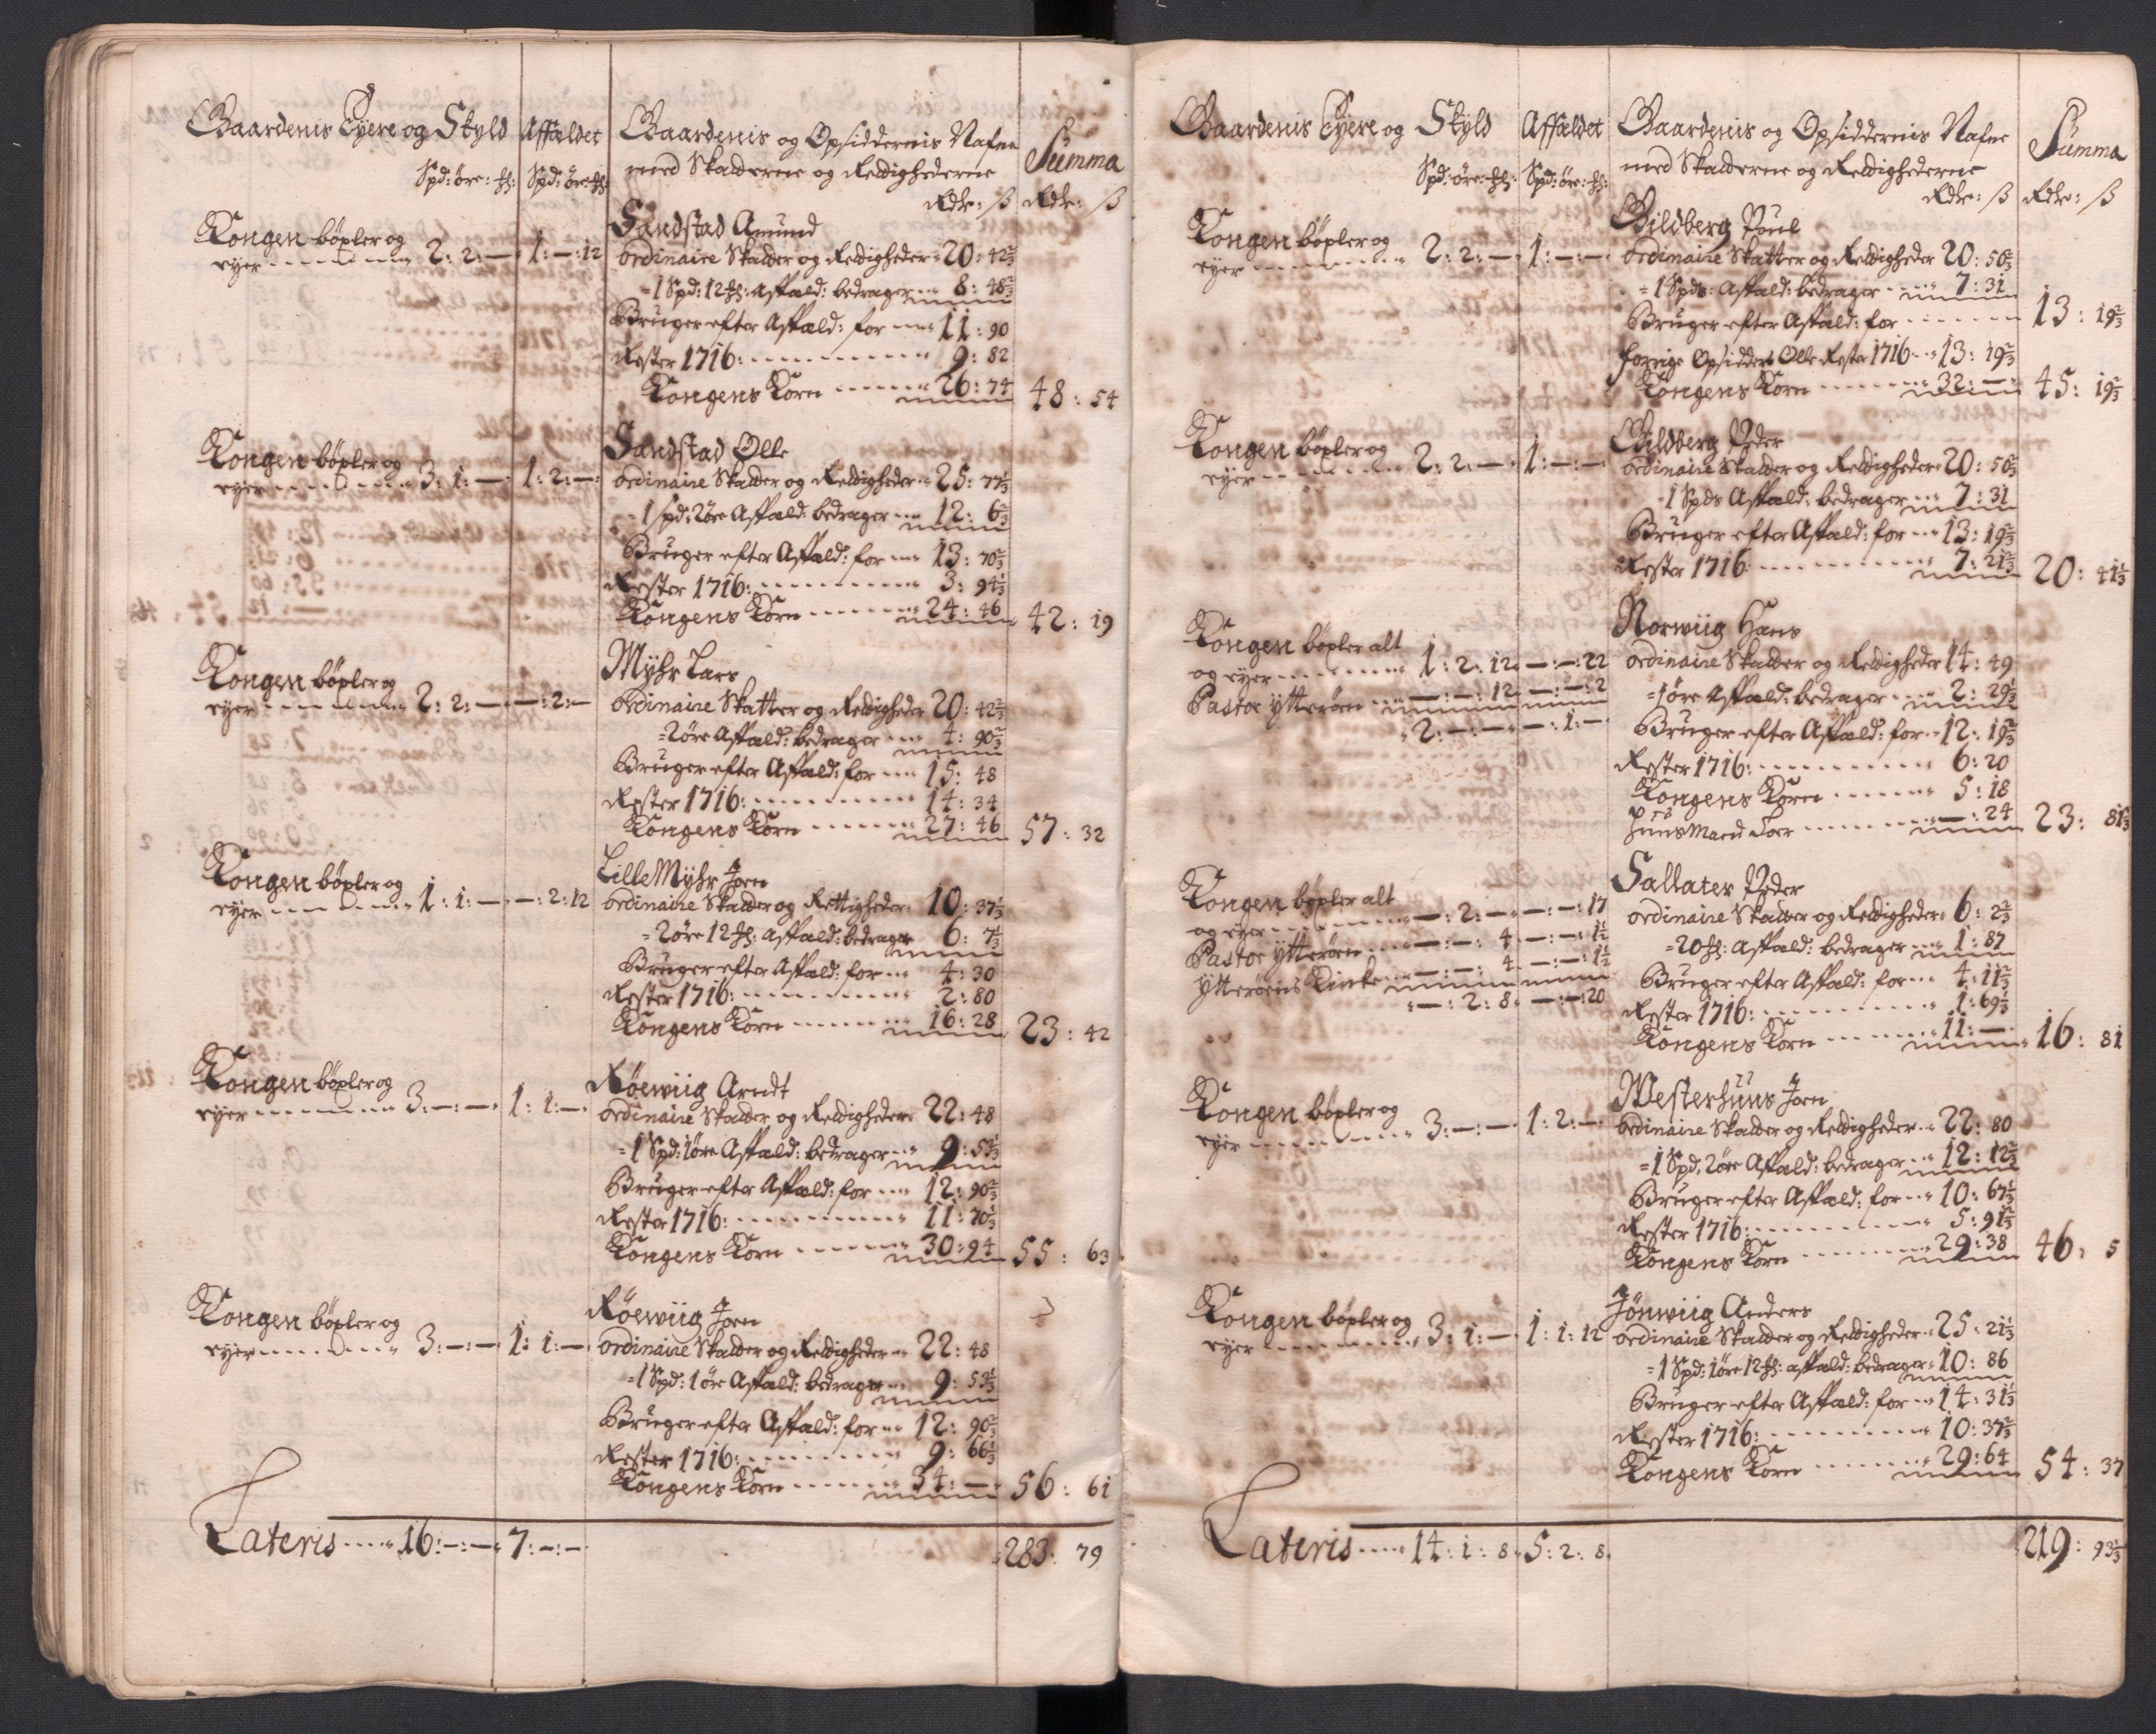 Gaardenis Eyere og Skyld
Spd: øre: ₰:
Affældet
Spd: øre: ₰:
Gaardenis og Opsiddernis Nafne
med Skatterne og Rettighederne
Rdr: ß
Summa
Rdr: ß
Kongen böxler og
eyer 2: 2: — 1: —: 12
Sandstad Amund
Ordinaire Skatter og Rettigheder 20: 42⅔
1 Spd: 12 ₰: affæld: bedrager 8: 48⅔
Bruger efter Affæld: for 11: 90
Rester 1716: 9: 82
Kongens Korn 26: 74 48: 54
Kongen böxler og
eyer 3: 1: — 1: 2: —
Sandstad Olle
Ordinaire Skatter og Rettigheder 25: 77⅓
1 Spd: 2 øre Affæld: bedrager 12: 6⅔
Bruger efter Affæld: for 13: 70⅔
Rester 1716: 3: 94⅓
Kongens Korn 24: 46 42: 19
Kongen böxler og
eyer 2: 2: — —: 2: —
Myhr Lars
Ordinaire Skatter og Rettigheder 20: 42⅔
2 øre Affæld: bedrager 4: 90⅔
Bruger efter Affæld: for 15: 48
Rester 1716: 14: 34
Kongens Korn 27: 46 57: 32
Kongen böxler og
eyer 1: 1: — —: 2: 12
Lille Myhr Jorn
Ordinaire Skatter og Rettigheder 10: 37⅓
2 øre 12 ₰: affæld: bedrager 6: 7⅓
Bruger efter Affæld: for 4: 30
Rester 1716: 2: 80
Kongens Korn 16: 28 23: 42
Kongen böxler og
eyer 3: —: — 1: 1: —
Röewiig Arndt
Ordinaire Skatter og Rettigheder 22: 48
1 Spd: 1 øre Affæld: bedrager 9: 53⅓
Bruger efter Affæld: for 12: 90⅔
Rester 1716: 11: 70⅓
Kongens Korn 30: 94 55: 63
Kongen böxler og
eyer 3: —: — 1: 1: —
Röewiig Jorn
Ordinaire Skatter og Rettigheder 22: 48
1 Spd: 1 øre Affæld: bedrager 9: 53⅓
Bruger efter Affæld: for 12: 90⅔
Rester 1716: 9: 66⅓
Kongens Korn 34: — 56: 61
Lateris 16: —: — 7: —: — 283: 79
Gaardenis Eyere og Skyld
Spd: øre: ₰:
Affældet
Spd: øre: ₰:
Gaardenis og Opsiddernis Nafne
med Skatterne og Rettighederne
Rdr: ß
Summa
Rdr: ß
Kongen böxler og
eyer 2: 2: — 1: —: —
Gildberg Poul
Ordinaire Skatter og Rettigheder 20: 50⅔
1 Spds: Affæld: bedrager 7: 31
Bruger efter Affæld: for 13: 19⅔
forrige Opsidder Olle Rester 1716 13: 19⅔
Kongens Korn 32: — 45: 19⅔
Kongen böxler og
eyer 2: 2: — 1: —: —
Gildberg Peder
Ordinaire Skatter og Rettigheder 20: 50⅔
1 Spds Affæld: bedrager 7: 31
Bruger efter Affæld: for 13: 19⅔
Rester 1716: 7: 21⅔ 20: 41⅓
Kongen böxler alt
og eyer 1: 2: 12 —: —: 22
Pastor Ytterøen —: —: 12 —: —: 2
2: —: — —: 1: —
Norwiig Hans
Ordinaire Skatter og Rettigheder 14: 49
1 øre Affæld: bedrager 2: 29⅓
Bruger efter Affæld: for 12: 19⅔
Rester 1716: 6: 20
Kongens Korn 5: 18
Huus Mand Joer —: 24 23: 81⅔
Kongen böxler alt
og eyer —: 2: — —: —: 17
Pastor Ytterøen —: —: 4 —: —: 1½
Ytterøens Kirke —: —: 4 —: —: 1½
—: 2: 8 —: —: 20
Sallater Peder
Ordinaire Skatter og Rettigheder 6: 2⅔
20 ₰: Affæld: bedrager 1: 87
Bruger efter Affæld: for 4: 11⅔
Rester 1716: 1: 69⅓
Kongens Korn 11: — 16: 81
Kongen böxler og
eyer 3: —: — 1: 2: —
Westerhuus Jorn
Ordinaire Skatter og Rettigheder 22: 80
1 Spd, 2 øre Affæld: bedrager 12: 12⅔
Bruger efter Affæld: for 10: 67⅓
Rester 1716: 5: 91⅔
Kongens Korn 29: 38 46: 5
Kongen böxler og
eyer 3: 1: — 1: 1: 12
Jönwiig Anders
Ordinaire Skatter og Rettigheder 25: 21⅓
1 Spd: 1 øre 12 ₰: affæld: bedrager 10: 86
Bruger efter Affæld: for 14: 31⅓
Rester 1716: 10: 37⅔
Kongens Korn 29: 64 54: 37
Lateris 14: 1: 8 5: 2: 8 219: 93⅓